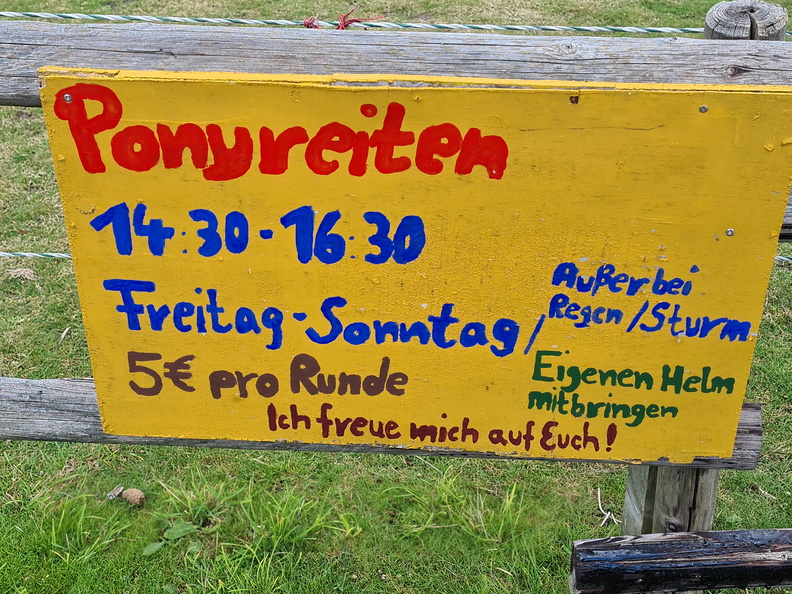 Ponyreiten
14:30-16:30
Freitag-Sonntag/
Außer bei
Regen/Sturm
5€ pro Runde
Eigenen Helm
mitbringen
Ich freue mich auf Euch!